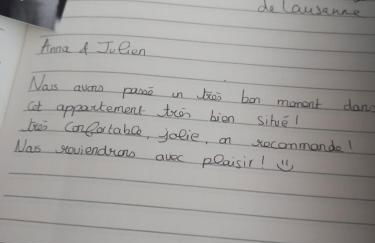 de Lausanne
Anna & Julien
Nous avons passé un très bon moment dans
cet appartement très bien situé!
très confortable, jolie, on recommande!
Nous reviendrons avec plaisir! ☺